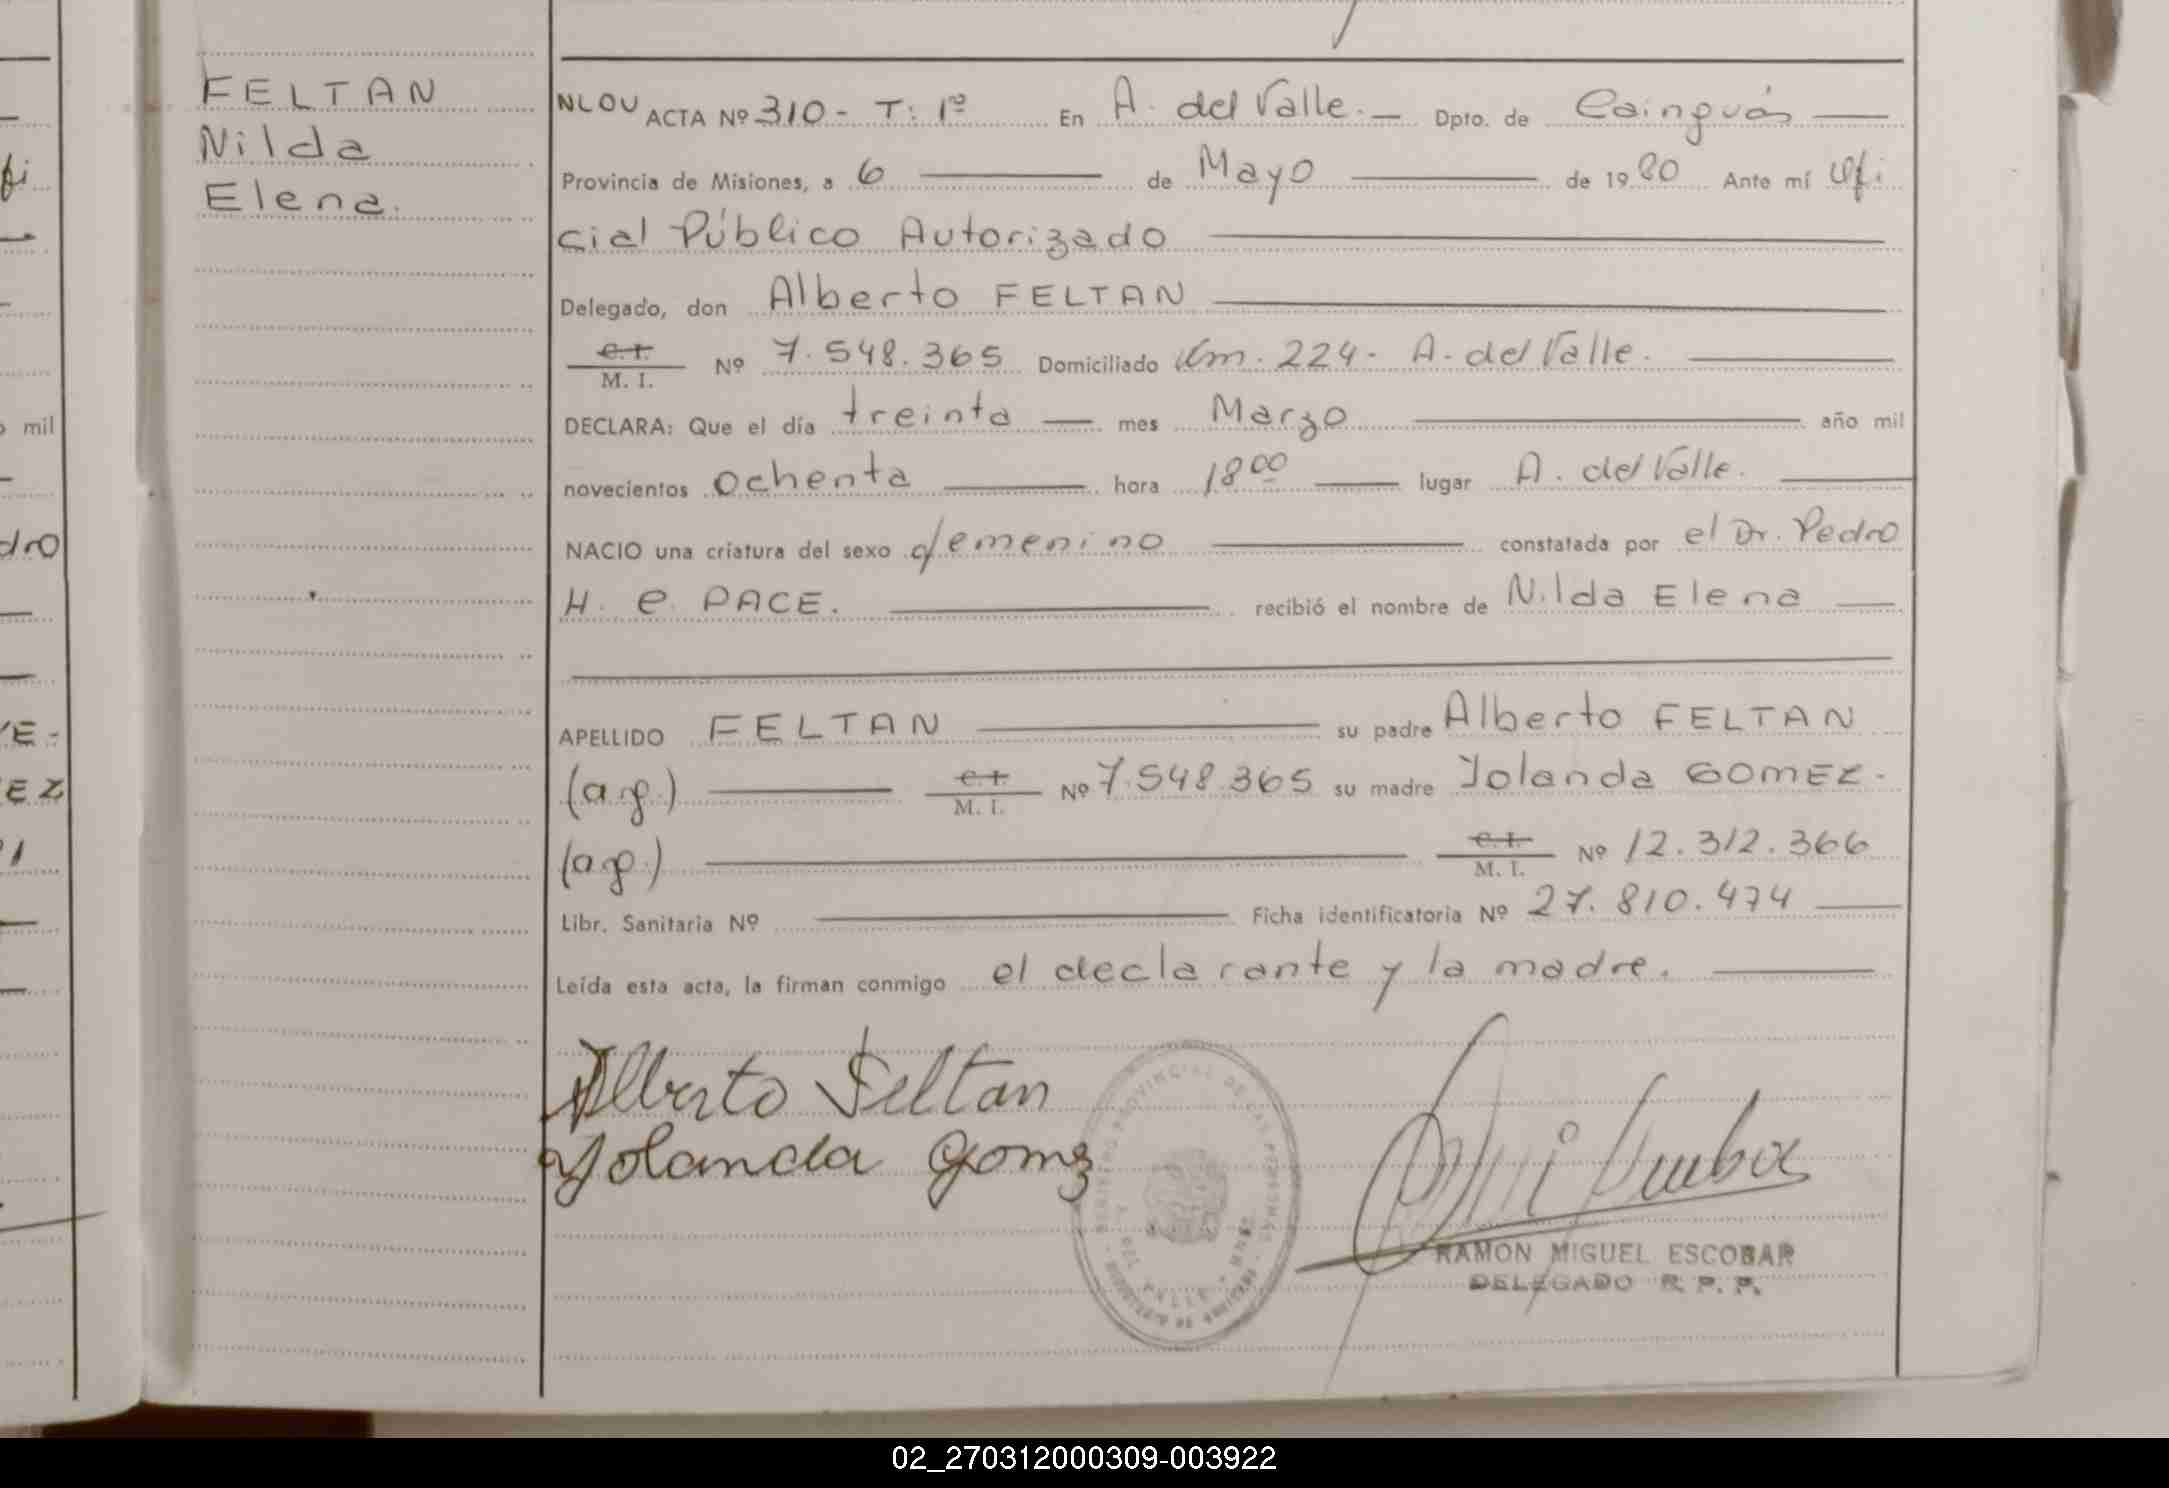 fi
mil
dro
VE-
EZ
FELTAN
Nilda
Elena.
NLOU ACTA Nº 310 - T: 1º En A. del Valle.- Dpto. de Cainguás
Provincia de Misiones, a 6 de Mayo de 1980 Ante mí Ofi
cial Público Autorizado
Delegado, don Alberto FELTAN
C.I. M. I. Nº 7.548.365 Domiciliado Km. 224- A. del Valle.
DECLARA: Que el día treinta mes Marzo año mil
novecientos ochenta hora 18⁰⁰ lugar A. del Valle.
NACIO una criatura del sexo femenino constatada por el Dr. Pedro
H. C. PACE. recibió el nombre de Nilda Elena
APELLIDO FELTAN su padre Alberto FELTAN
(arg.) C.I. M. I. Nº 7.548.365 su madre Yolanda GOMEZ.
(arg.) C.I. M. I. Nº 12.312.366
Libr. Sanitaria Nº Ficha identificatoria Nº 27.810.474
Leída esta acta, la firman conmigo el declarante y la madre.
Alberto Feltan
Yolanda Gomz
REGISTRO PROVINCIAL DE LAS PERSONAS
A. DEL VALLE - MNES.
RAMON MIGUEL ESCOBAR
DELEGADO R. P. P.
02_270312000309-003922